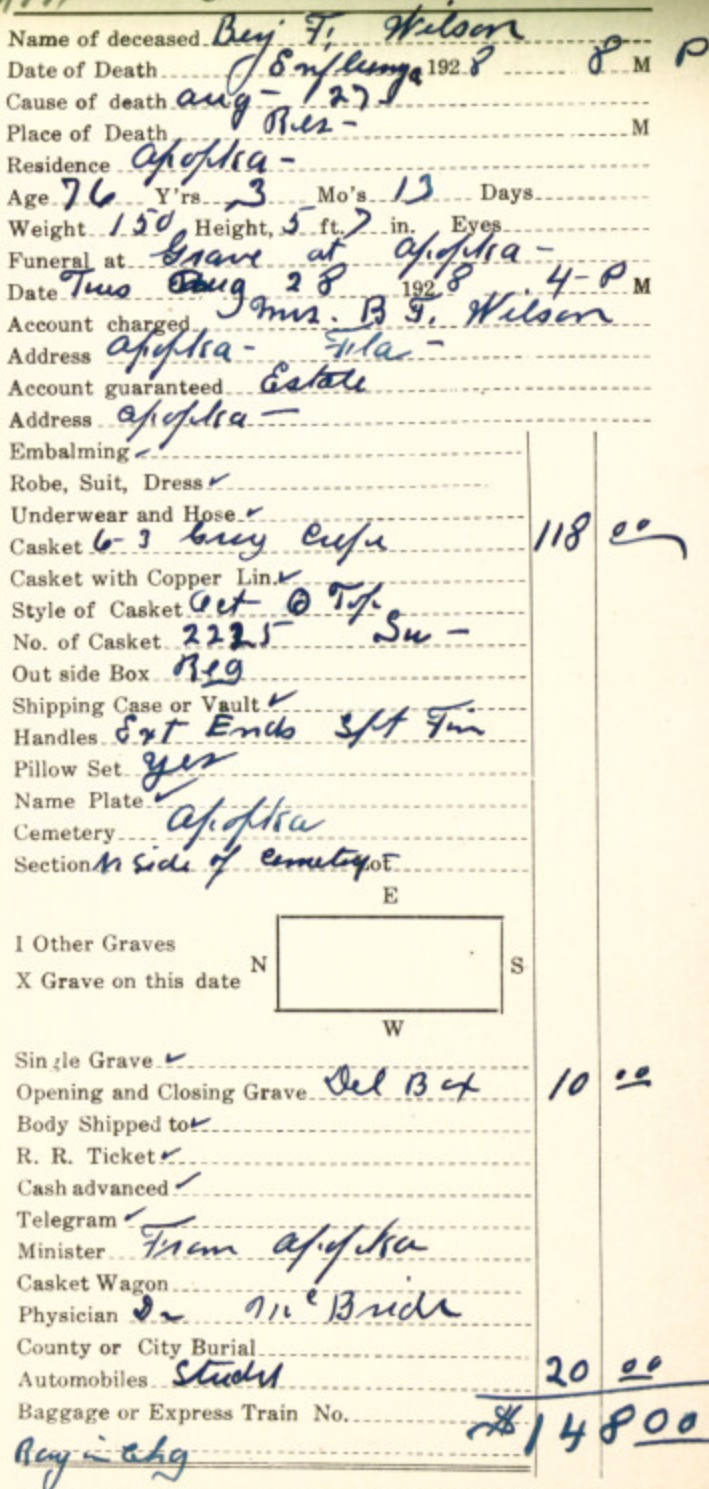 Name of deceased Benj F. Wilson
Date of Death Influenza 1928 8 M P
Cause of death Aug - 27
Place of Death Res - M
Residence Apopka -
Age 76 Y'rs 3 Mo's 13 Days
Weight 150 Height, 5 ft. 7 in. Eyes
Funeral at Grave at Apopka -
Date Tues Aug 28 1928 4- P M
Account charged Mrs. B F. Wilson
Address Apopka - Fla -
Account guaranteed Estate
Address Apopka -
Embalming ✓
Robe, Suit, Dress ✓
Underwear and Hose ✓
Casket 6-3 Gray Crepe 118 00
Casket with Copper Lin. ✓
Style of Casket Oct Top
No. of Casket 2225
Out side Box Reg
Shipping Case or Vault ✓
Handles Ext Ends
Pillow Set yes
Name Plate ✓
Cemetery Apopka
Section N Side of Cemetery Lot
E
I Other Graves
N S
X Grave on this date
W
Single Grave ✓
Opening and Closing Grave Del Box 10 00
Body Shipped to ✓
R. R. Ticket ✓
Cash advanced ✓
Telegram ✓
Minister From Apopka
Casket Wagon
Physician Dr McBride
County or City Burial
Automobiles 20 00
Baggage or Express Train No. $148 00
Ray in Chg